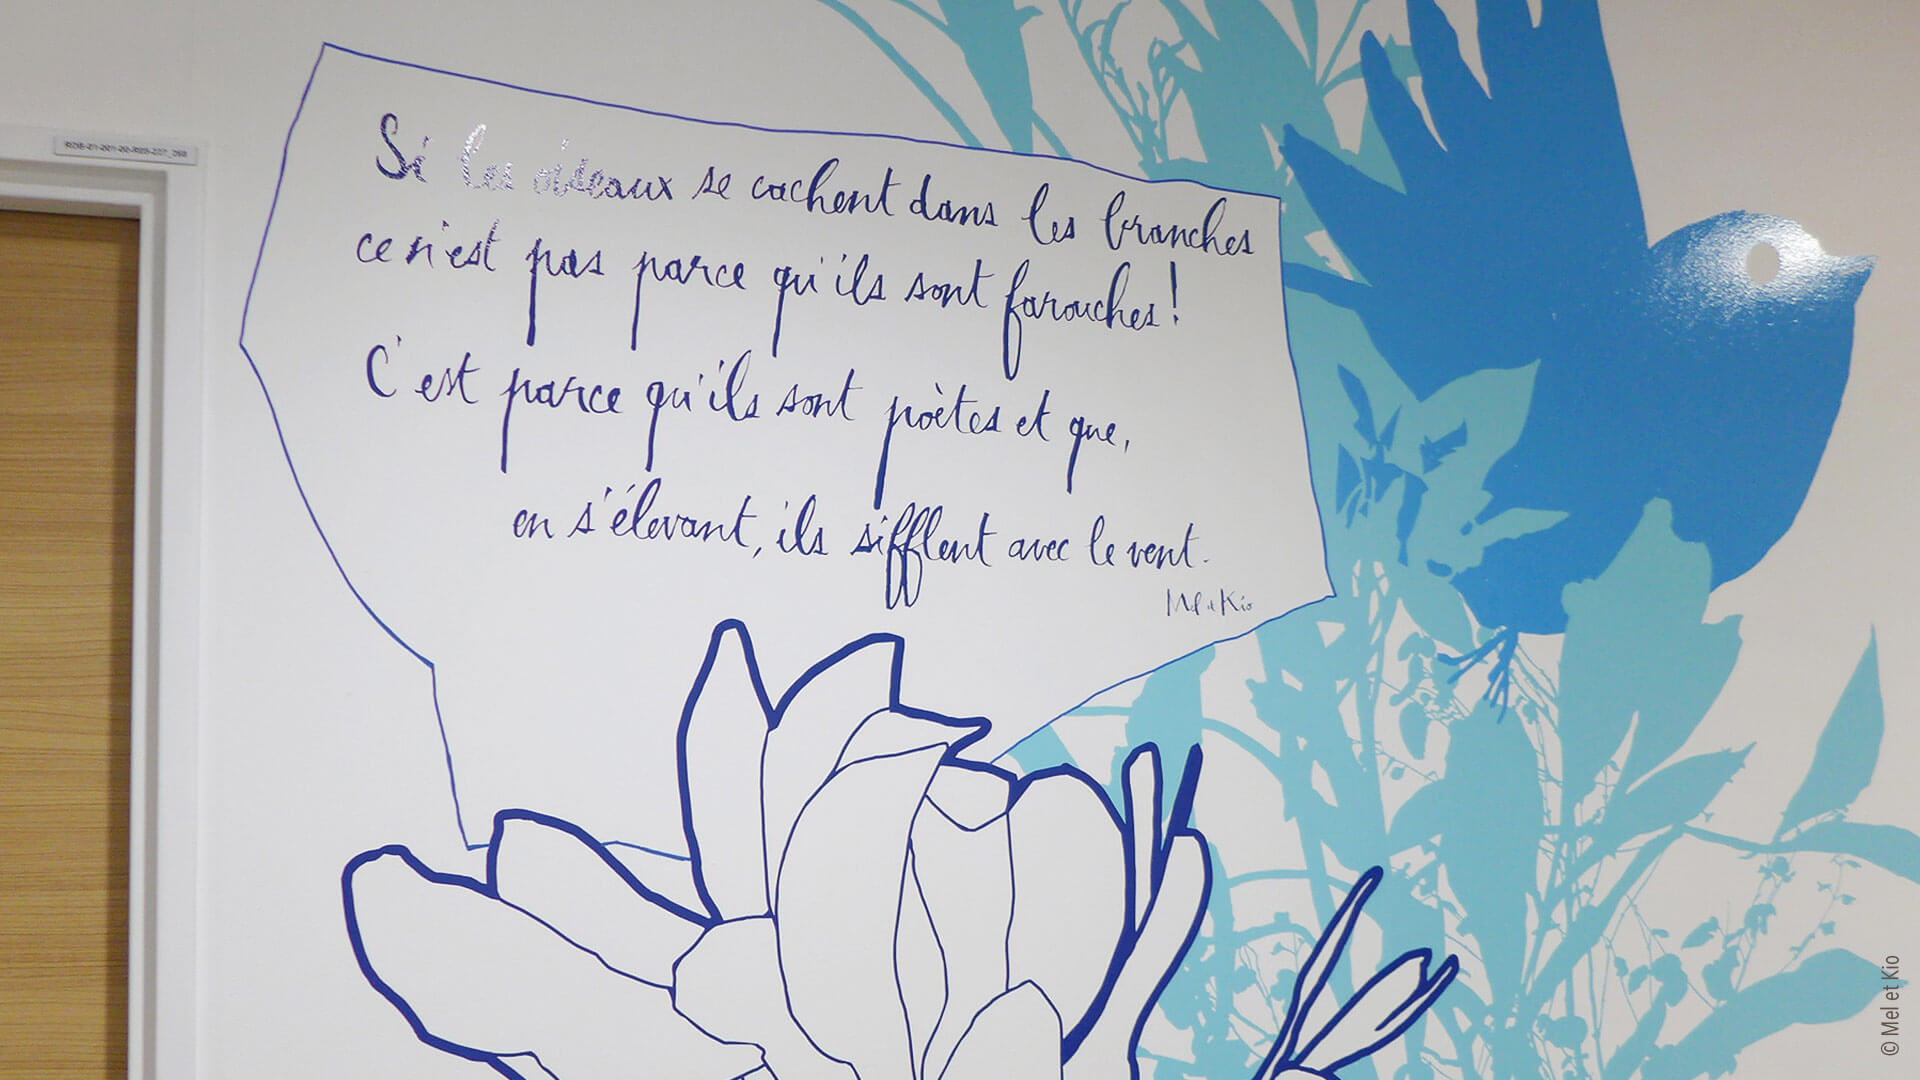 Si les oiseaux se cachent dans les branches
ce n'est pas parce qu'ils sont farouches !
C'est parce qu'ils sont poètes et que,
en s'élevant, ils sifflent avec le vent.
Mel et Kio
© Mel et Kio